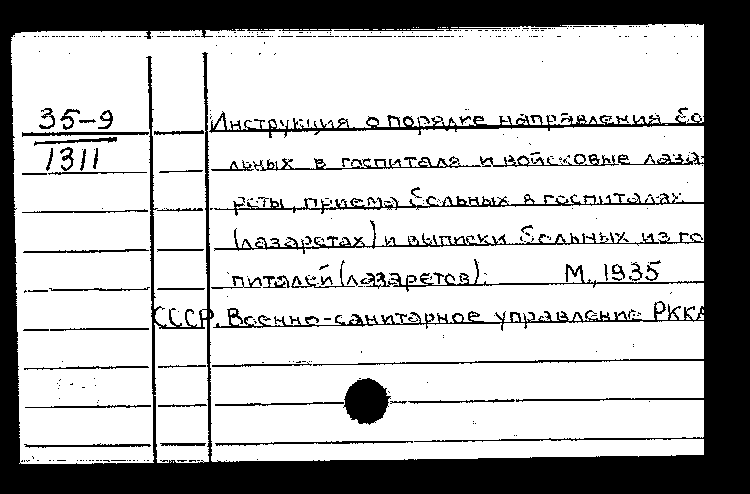 35-9
1311
Инструкция о порядке направления бо
льных в госпиталя и войсковые лаза-
реты, приема больных в госпиталях
(лазаретах) и выписки больных из го
питалей (лазаретов).       М., 1935
СССР. Военно-санитарное управление РККА